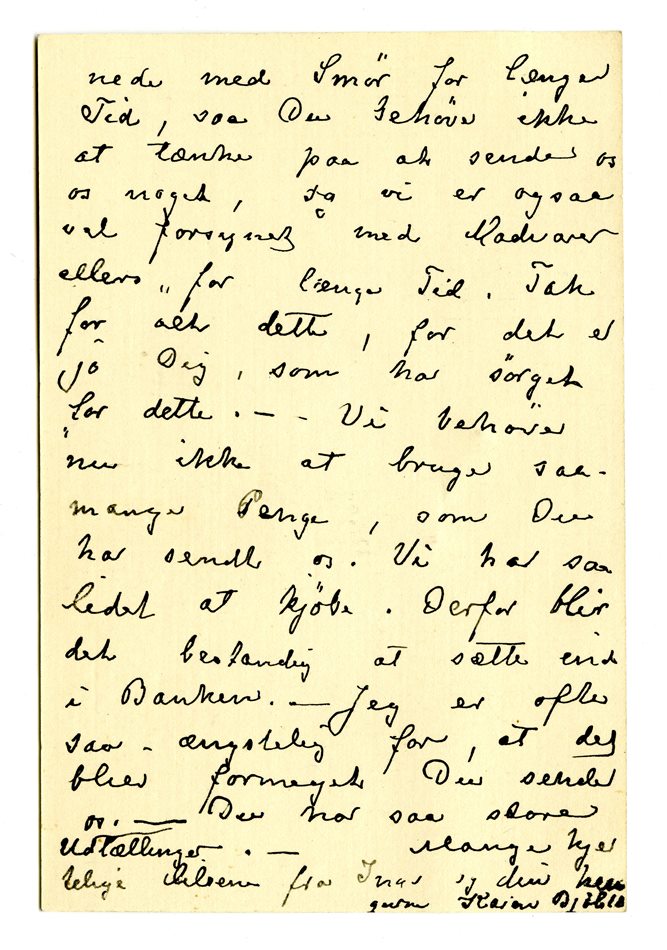 nede med Smör for længer
Tid, saa Du behöve ikke
at tænke paa at sende os
os noget, da vi er ogsaa
vel forsynet med Madvarer
ellers „ for længe Tid. Tak
for alt dette, for det er
jo Dig, som har sörget
for dette. — - Vi behöve
nu ikke at bruge saa-
mange Penge, som Du
har sendt os. Vi har saa
lidet at kjöbe. Derfor blir
det bestandig at sætte ind
i Banken. — Jeg er ofte
saa - ængstelig for, at det
blir formeget Du sender
os. — Du har saa store
Udtællinger. — Mange hjer
telige hilsener fra Inar og din hen
given Karen